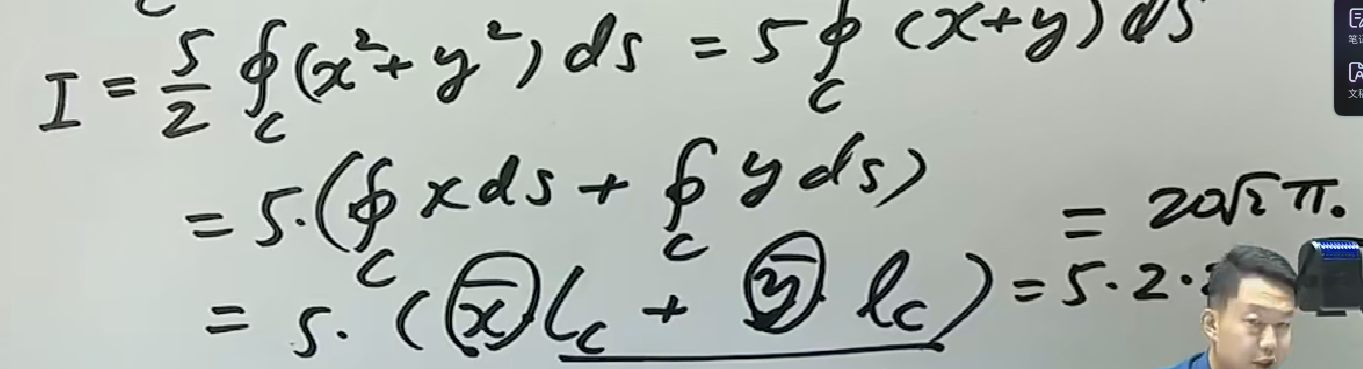 I = 5/2 ∮_C (x² + y²) ds = 5 ∮_C (x+y) ds
= 5·(∮_C x ds + ∮_C y ds)
= 5·(x̄ l_C + ȳ l_C) = 5·2·
= 20√2 π.
笔记
文稿